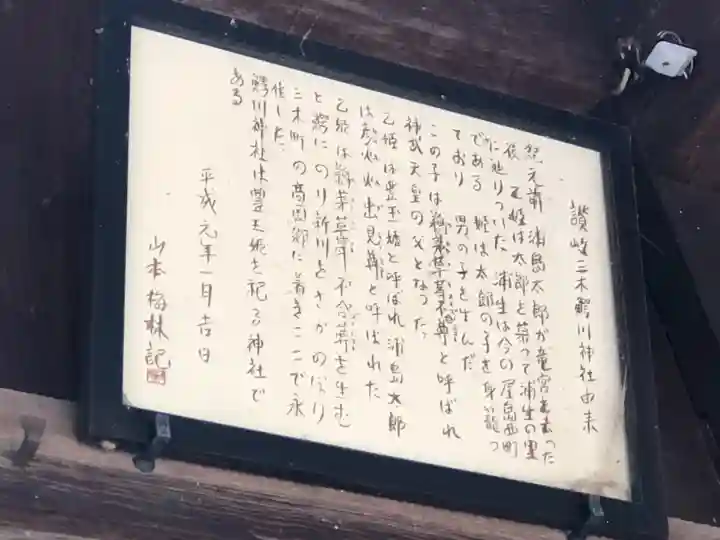 讃岐三木鰐川神社由来
紀元前 浦島太郎が竜宮を去った
後 乙姫は太郎を慕って浦生の里
に辿りついた 浦生は今の屋島西町
である 姫は太郎の子を身籠っ
ており 男の子を生んだ
この子は 草葺不 尊と呼ばれ
神武天皇の父となった
乙姫は豊玉姫と呼ばれ浦島太郎
は彦火火出見尊と呼ばれた
乙姫は 草葺不合尊を生む
と鰐にのり新川をさかのぼり
三木町の高岡郷に着きここで永
住した
鰐川神社は豊玉姫を祀る神社で
ある
平成元年一月吉日
山本梅林記